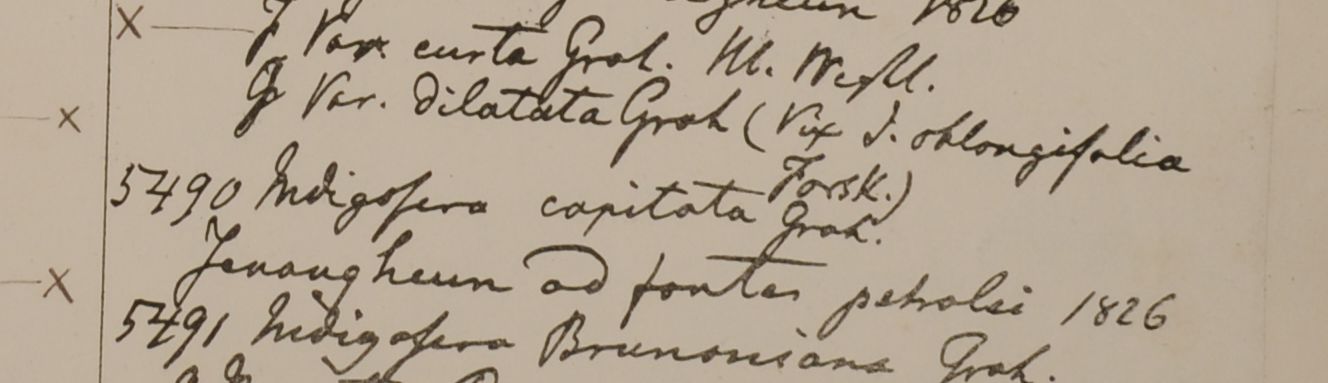 1826
f Var. curta Grah. Hb. Wight.
g Var. dilatata Grah (Vix I. oblongifolia
Forsk.)
5490 Indigofera capitata Grah.
Yenangheun ad fontes petrolei 1826
5491 Indigofera Brunoniana Grah.